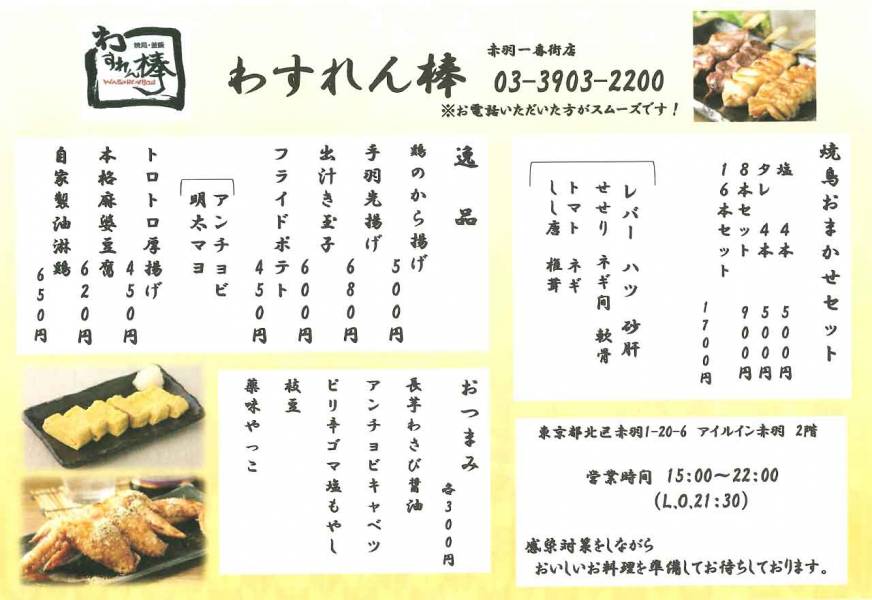 焼鳥・釜飯
わすれん棒
WASURENBOU
わすれん棒
赤羽一番街店
03-3903-2200
※お電話いただいた方がスムーズです！
焼鳥おまかせセット
塩 4本 500円
タレ 4本 500円
8本セット 900円
16本セット 1700円
レバー ハツ 砂肝
せせり ネギ間 軟骨
トマト ネギ
しし唐 椎茸
逸品
鶏のから揚げ 500円
手羽先揚げ 680円
出汁き玉子 600円
フライドポテト 450円
アンチョビ
明太マヨ
トロトロ厚揚げ 450円
本格麻婆豆腐 620円
自家製油淋鶏 650円
おつまみ 各300円
長芋わさび醤油
アンチョビキャベツ
ピリ辛ゴマ塩もやし
枝豆
薬味やっこ
東京都北区赤羽1-20-6 アイルイン赤羽 2階
営業時間 15:00～22:00
(L.O.21:30)
感染対策をしながら
おいしいお料理を準備してお待ちしております。